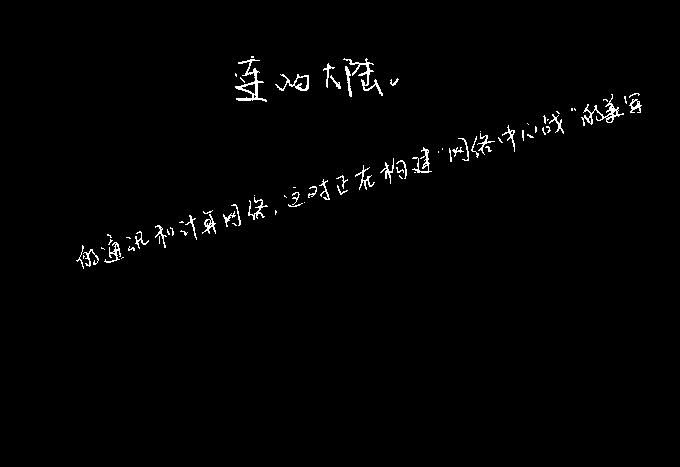 连的大陆。
的通讯和计算网络,这对正在构建“网络中心战”的美军